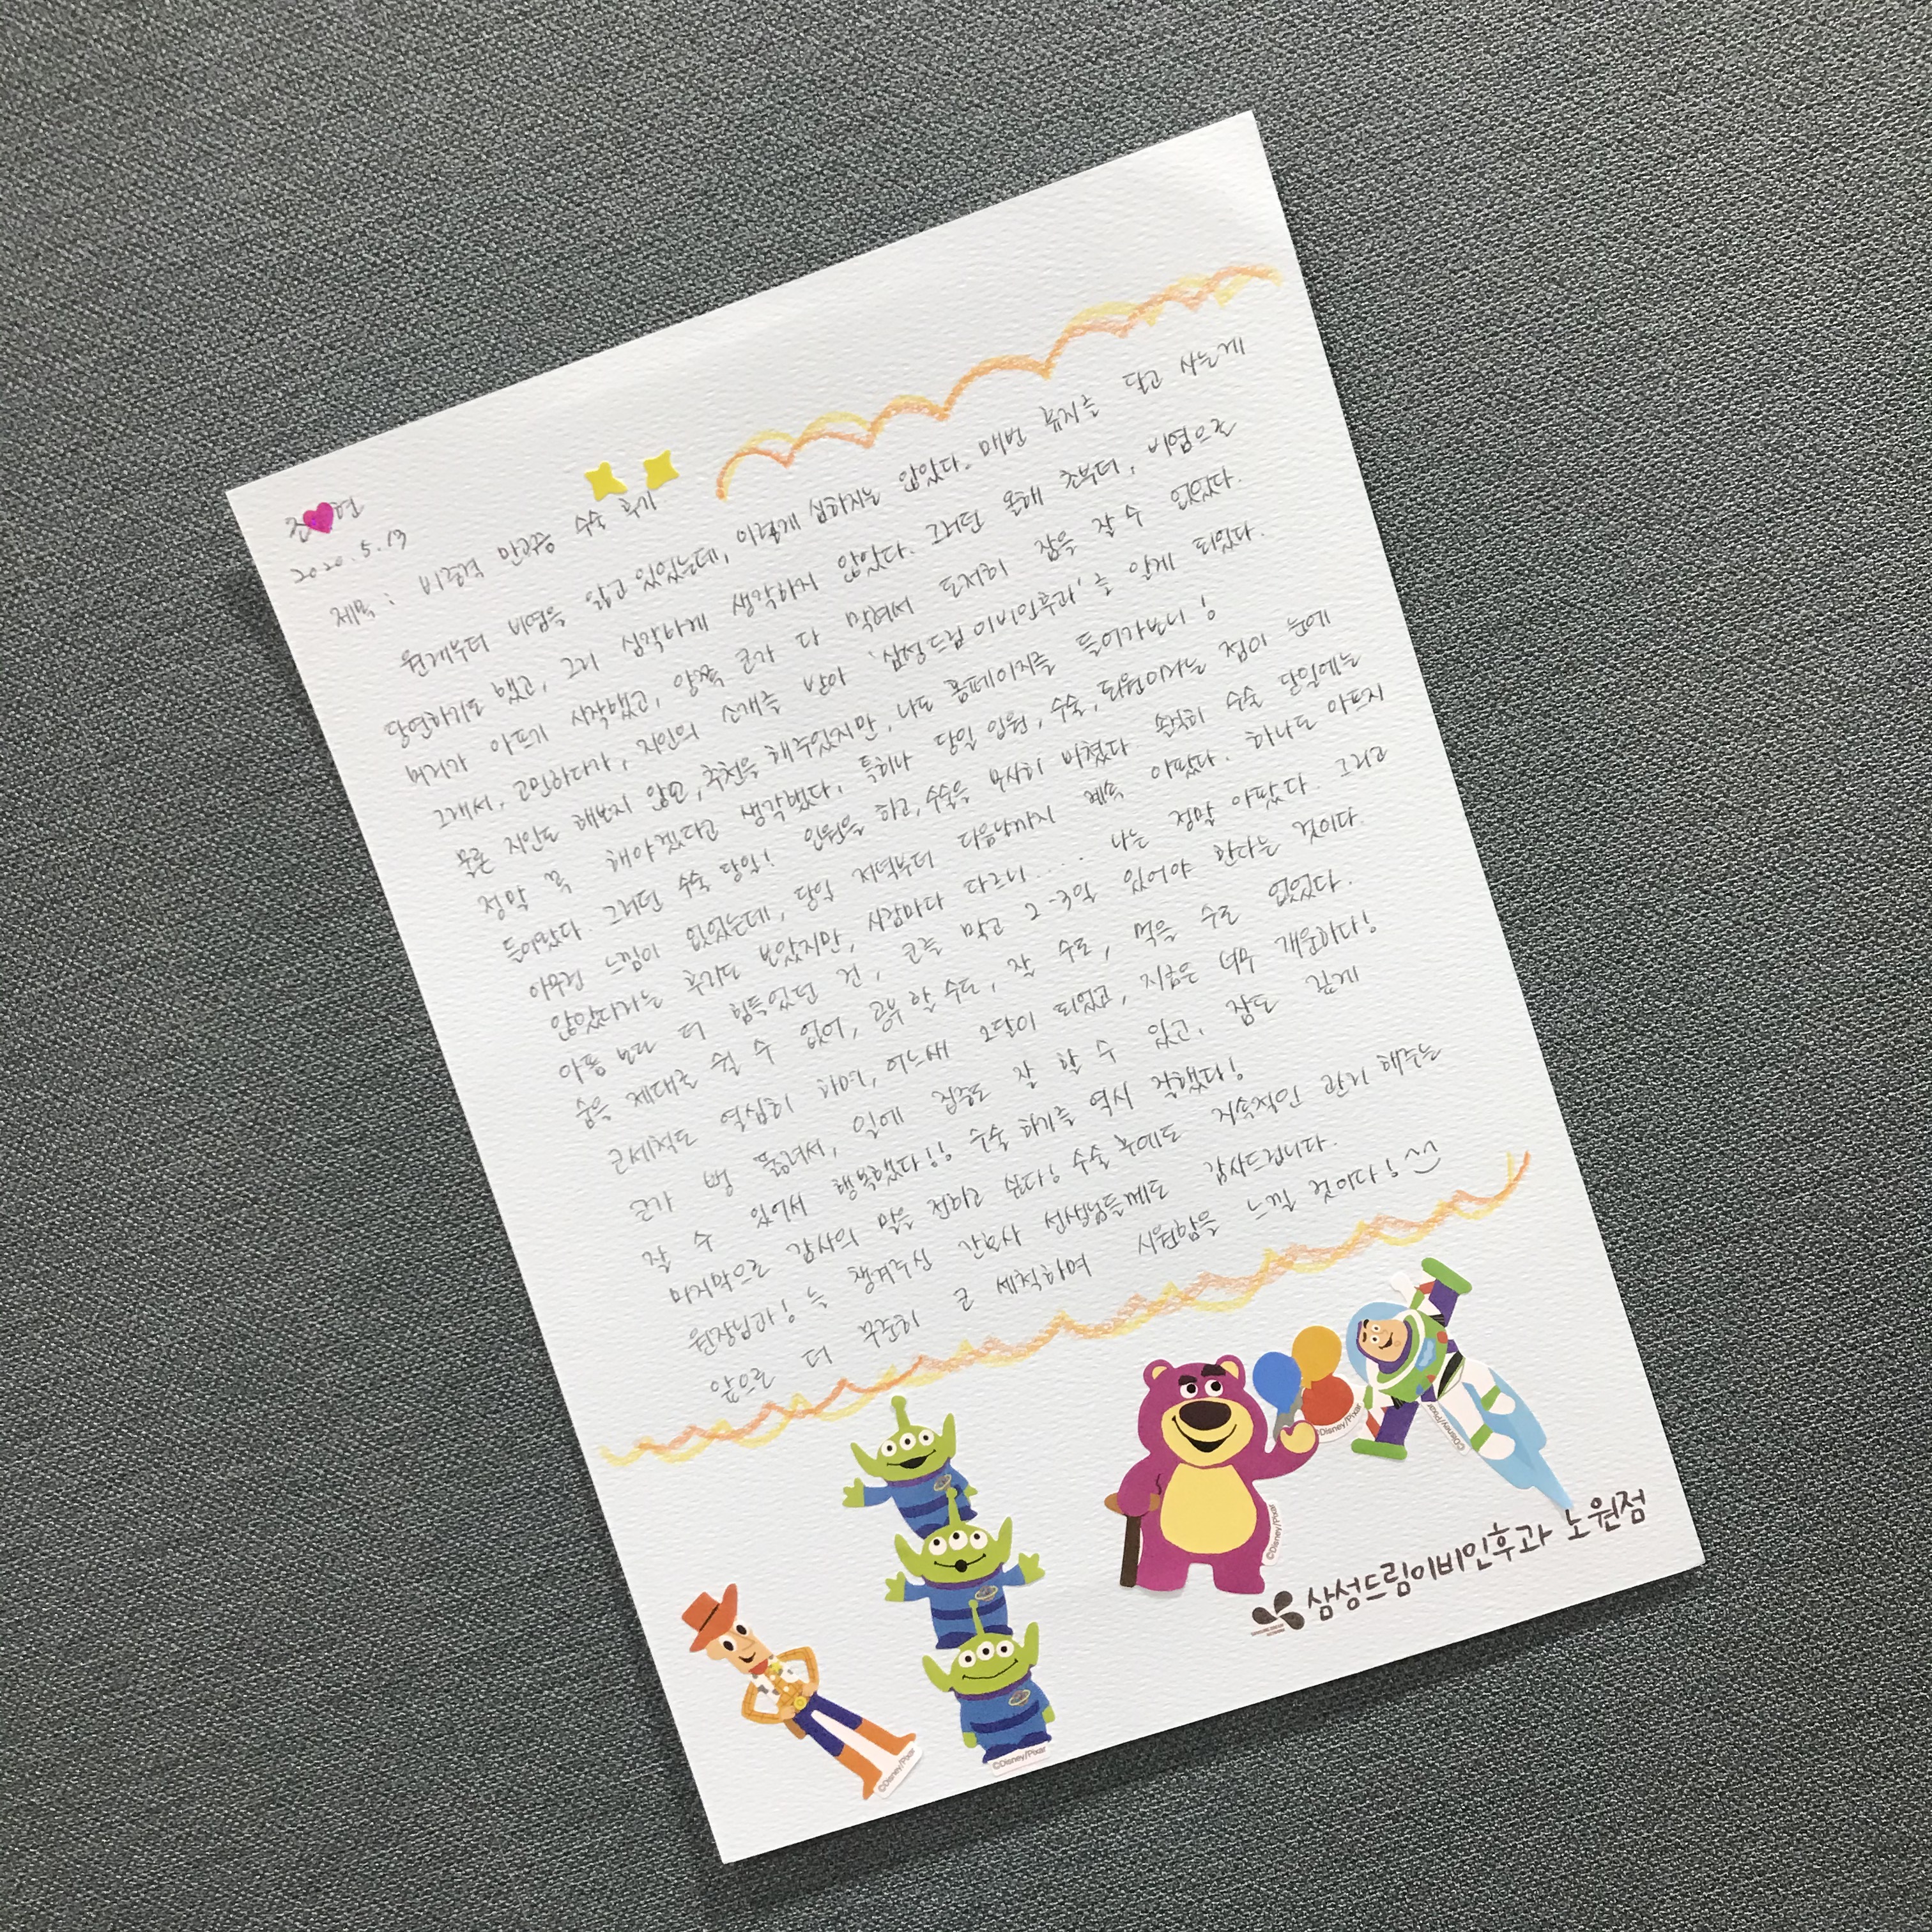 조 현
2020. 5. 13
제목 : 비중격 만곡증 수술 후기
원래부터 비염을 앓고 있었는데, 이렇게 심하지는 않았다. 매번 휴지를 달고 사는게
당연하기도 했고, 그리 심각하게 생각하지 않았다. 그러던 올해 초부터, 비염으로
머리가 아프기 시작했고, 양쪽 코가 다 막혀서 도저히 잠을 잘 수 없었다.
그래서, 고민하다가, 지인의 소개를 받아 '삼성드림이비인후과'를 알게 되었다.
물론 지인도 해보지 않고, 추천을 해주었지만, 나도 홈페이지를 들어가보니!
정말 꼭 해야겠다고 생각했다, 특히나 당일 입원, 수술, 퇴원이라는 점이 눈에
들어왔다. 그러던 수술 당일! 입원을 하고, 수술을 무사히 마쳤다. 솔직히 수술 당일에는
아무런 느낌이 없었는데, 당일 저녁부터 다음날까지 계속 아팠다. 하나도 아프지
않았다라는 후기도 보았지만, 사람마다 다르니.... 나는 정말 아팠다. 그리고
아픔 보다 더 힘들었던 건, 코를 막고 2-3일 있어야 한다는 것이다.
숨을 제대로 쉴 수 없어, 공부 할 수도, 잘 수도, 먹을 수도 없었다.
코세척도 열심히 하며, 어느새 2달이 되었고, 지금은 너무 개운하다!
코가 뻥 뚫려서, 일에 집중도 잘 할 수 있고, 잠도 깊게
잘 수 있어서 행복했다!! 수술 하기를 역시 잘했다!
마지막으로 감사의 말을 전하고 싶다! 수술 후에도 지속적인 관리 해주는
원장님과! 늘 챙겨주신 간호사 선생님들께도 감사드립니다.
앞으로 더 꾸준히 코 세척하며 시원함을 느낄 것이다!
©Disney/Pixar
©Disney/Pixar
©Disney/Pixar
©Disney/Pixar
©Disney/Pixar
삼성드림이비인후과 노원점